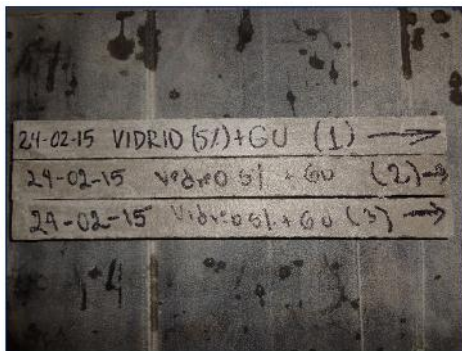 24-02-15 VIDRIO (5%)+GU (1) →
24-02-15 Vidreo 5% + GU (2) →
24-02-15 Vidreo 5% + GU (3) →